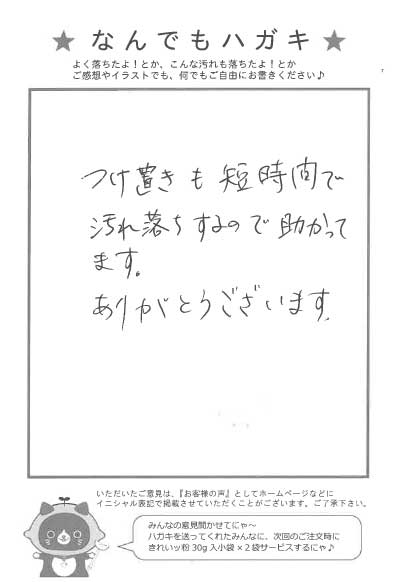 ★ なんでもハガキ ★
よく落ちたよ！とか、こんな汚れも落ちたよ！とか
ご感想やイラストでも、何でもご自由にお書きください♪
つけ置きも短時間で
汚れ落ちするので助かって
ます。
ありがとうございます。
いただいたご意見は、『お客様の声』としてホームページなどに
イニシャル表記で掲載させていただくことがございます。ご了承下さい。
みんなの意見聞かせてにゃ〜
ハガキを送ってくれたみんなに、次回のご注文時に
きれいッ粉 30g 入小袋×２袋サービスするにゃ♪